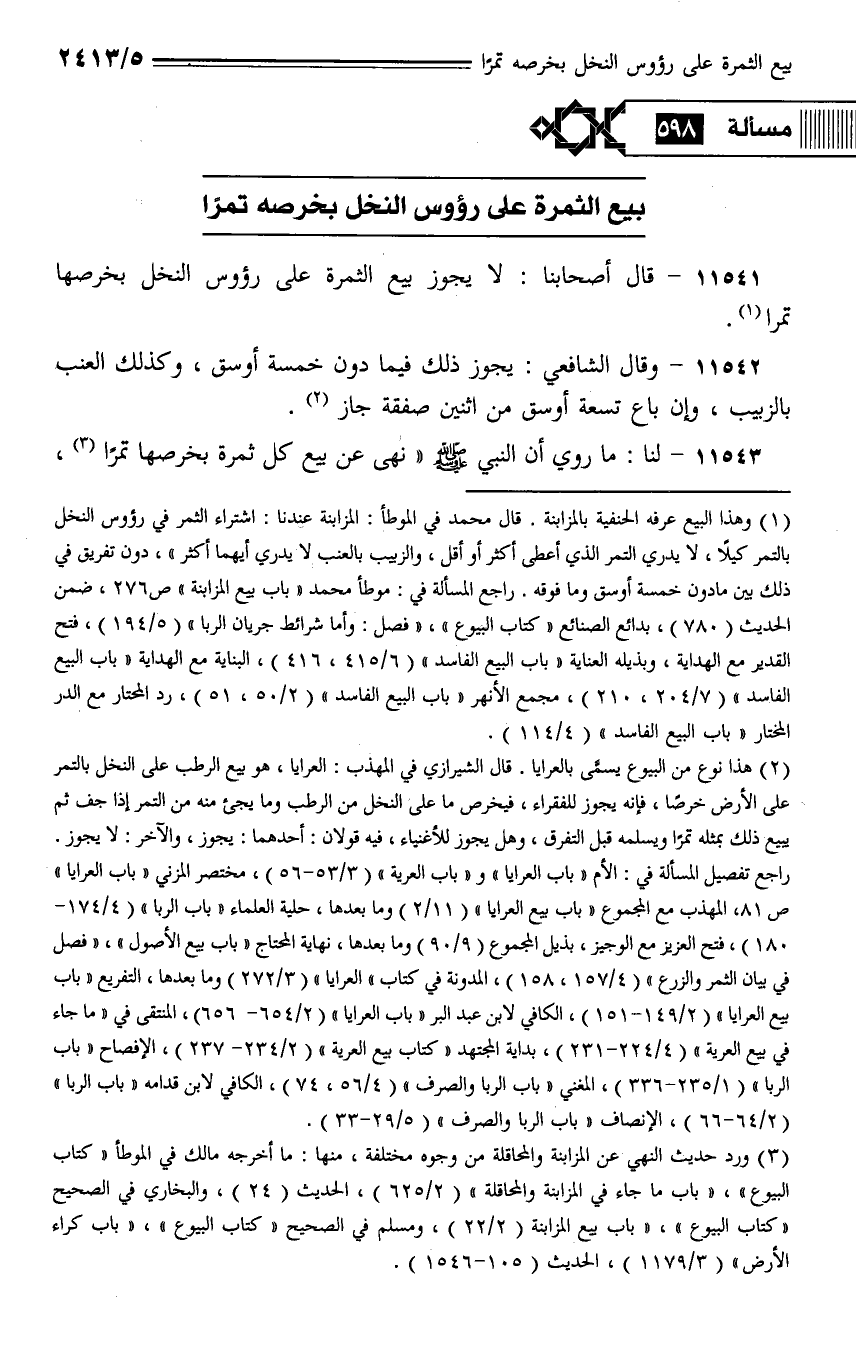 بيع الثمرة على رؤوس النخل بخرصه تمرًا ٢٤١٣/٥
مسألة ٥٩٨
بيع الثمرة على رؤوس النخل بخرصه تمرًا
١١٥٤١ - قال أصحابنا : لا يجوز بيع الثمرة على رؤوس النخل بخرصها
تمرا (١) .
١١٥٤٢ - وقال الشافعي : يجوز ذلك فيما دون خمسة أوسق ، وكذلك العنب
بالزبيب ، وإن باع تسعة أوسق من اثنين صفقة جاز (٢) .
١١٥٤٣ - لنا : ما روي أن النبي ﷺ « نهى عن بيع كل ثمرة بخرصها تمرًا (٣) ،
(١) وهذا البيع عرفه الحنفية بالمزابنة . قال محمد في الموطأ : المزابنة عندنا : اشتراء الثمر في رؤوس النخل
بالتمر كيلًا ، لا يدري التمر الذي أعطى أكثر أو أقل ، والزبيب بالعنب لا يدري أيهما أكثر » ، دون تفريق في
ذلك بين مادون خمسة أوسق وما فوقه . راجع المسألة في : موطأ محمد « باب بيع المزابنة » ص٢٧٦ ، ضمن
الحديث ( ٧٨٠ ) ، بدائع الصنائع « كتاب البيوع » ، « فصل : وأما شرائط جريان الربا » ( ١٩٤/٥ ) ، فتح
القدير مع الهداية ، وبذيله العناية « باب البيع الفاسد » ( ٤١٥/٦ ، ٤١٦ ) ، البناية مع الهداية « باب البيع
الفاسد » ( ٢٠٤/٧ ، ٢١٠ ) ، مجمع الأنهر « باب البيع الفاسد » ( ٥٠/٢ ، ٥١ ) ، رد المختار مع الدر
المختار « باب البيع الفاسد » ( ١١٤/٤ ) .
(٢) هذا نوع من البيوع يسمَّى بالعرايا . قال الشيرازي في المهذب : العرايا ، هو بيع الرطب على النخل بالتمر
على الأرض خرصًا ، فإنه يجوز للفقراء ، فيخرص ما على النخل من الرطب وما يجئ منه من التمر إذا جف ثم
يبيع ذلك بمثله تمرًا ويسلمه قبل التفرق ، وهل يجوز للأغنياء ، فيه قولان : أحدهما : يجوز ، والآخر : لا يجوز .
راجع تفصيل المسألة في : الأم « باب العرايا » و « باب العرية » ( ٥٣/٣-٥٦ ) ، مختصر المزني « باب العرايا »
ص ٨١، المهذب مع المجموع « باب بيع العرايا » ( ٢/١١ ) وما بعدها ، حلية العلماء « باب الربا » ( ١٧٤/٤-
١٨٠ ) ، فتح العزيز مع الوجيز ، بذيل المجموع ( ٩٠/٩ ) وما بعدها ، نهاية المحتاج « باب بيع الأصول » ، « فصل
في بيان الثمر والزرع » ( ١٥٧/٤ ، ١٥٨ ) ، المدونة في كتاب » العرايا » ( ٢٧٢/٣ ) وما بعدها ، التفريع « باب
بيع العرايا » ( ١٤٩/٢-١٥١ ) ، الكافي لابن عبد البر « باب العرايا » ( ٦٥٤/٢- ٦٥٦ )، المنتقى في « ما جاء
في بيع العرية » ( ٢٢٤/٤-٢٣١ ) ، بداية المجتهد « كتاب بيع العرية » ( ٢٣٤/٢- ٢٣٧ ) ، الإفصاح « باب
الربا » ( ٢٣٥/١-٣٣٦ ) ، المغني « باب الربا والصرف » ( ٥٦/٤ ، ٧٤ ) ، الكافي لابن قدامه « باب الربا »
( ٦٤/٢-٦٦ ) ، الإنصاف « باب الربا والصرف » ( ٢٩/٥-٣٣ ) .
(٣) ورد حديث النهي عن المزابنة والمحاقلة من وجوه مختلفة ، منها : ما أخرجه مالك في الموطأ « كتاب
البيوع » ، « باب ما جاء في المزابنة والمحاقلة » ( ٦٢٥/٢ ) ، الحديث ( ٢٤ ) ، والبخاري في الصحيح
« كتاب البيوع » ، « باب بيع المزابنة ( ٢٢/٢ ) ، ومسلم في الصحيح « كتاب البيوع » ، « باب كراء
الأرض» ( ١١٧٩/٣ ) ، الحديث ( ١٠٥-١٥٤٦ ) .